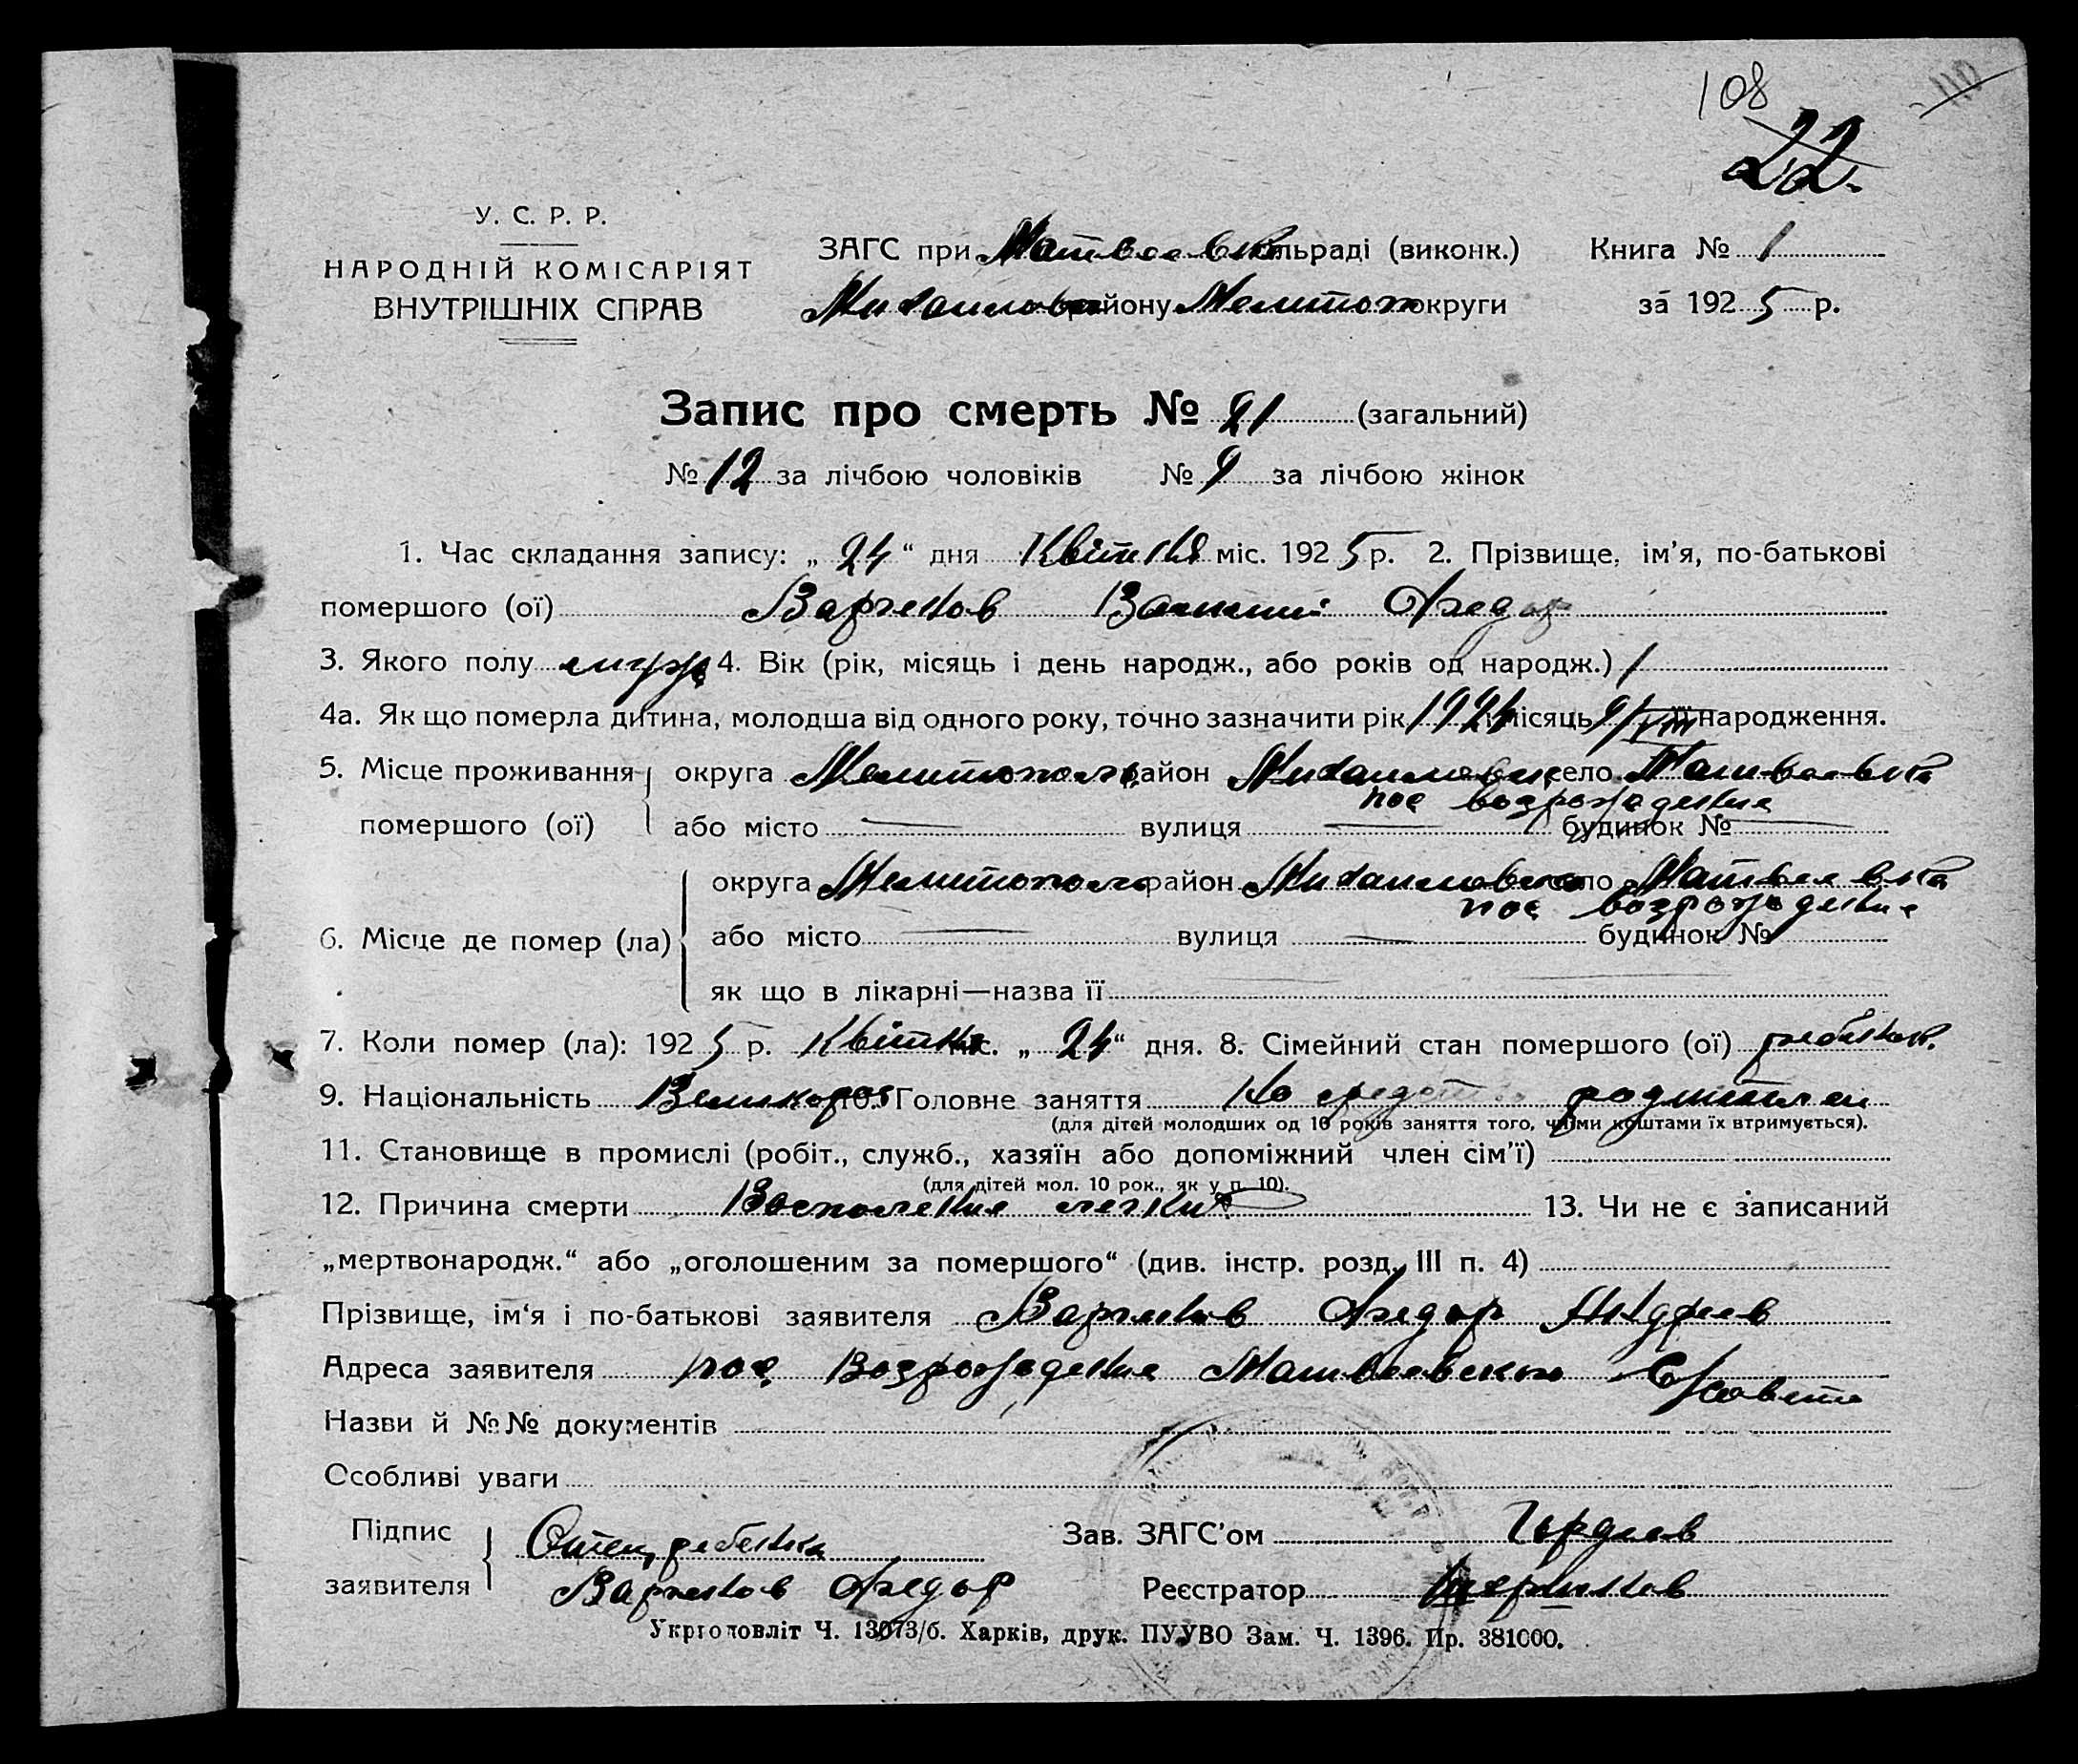 108
22.
У. С. Р. Р.
НАРОДНІЙ КОМІСАРІЯТ
ВНУТРІШНІХ СПРАВ
ЗАГС при Матвеевке сільраді (виконк.)
Михаиловск району Мелитоп округи
Книга № 1
за 1925 р.
Запис про смерть № 21 (загальний)
№ 12 за лічбою чоловіків № 9 за лічбою жінок
1. Час складання запису: „ 24 “ дня Квітня міс. 1925 р. 2. Прізвище, ім’я, по-батькові
помершого (ої) Варченов Федор
3. Якого полу муж 4. Вік (рік, місяць і день народж., або років од народж.) 1
4а. Як що померла дитина, молодша від одного року, точно зазначити рік 1924 місяць 9/VIII її народження.
5. Місце проживання помершого (ої) округа Мелитополь район Михаиловск село Матвеевка
пос возрождение
або місто — вулиця — будинок № —
6. Місце де помер (ла) округа Мелитополь район Михаиловск село Матвеевка
пос возрождение
або місто — вулиця — будинок №
як що в лікарні—назва її
7. Коли помер (ла): 1925 р. Квітня міс. „ 24 “ дня. 8. Сімейний стан помершого (ої) ребенок.
9. Національність Великорос 10. Головне заняття На средства родителей
(для дітей молодших од 10 років заняття того, чиїми коштами їх втримується).
11. Становище в промислі (робіт., служб., хазяїн або допоміжний член сім’ї)
(для дітей мол. 10 рок., як у п. 10).
12. Причина смерти Воспаление легких 13. Чи не є записаний
„мертвонародж.“ або „оголошеним за помершого“ (див. інстр. розд. III п. 4)
Прізвище, ім‘я і по-батькові заявителя Варченов Федор Андреев
Адреса заявителя пос. Возрождение Матвеевского С/совета
Назви й №№ документів
Особливі уваги
Підпис заявителя Отец ребенка
Варченов Федор
Зав. ЗАГС’ом Гордеев
Реєстратор
Укрголовліт Ч. 13073/б. Харків, друк. ПУУВО Зам. Ч. 1396. Пр. 381000.